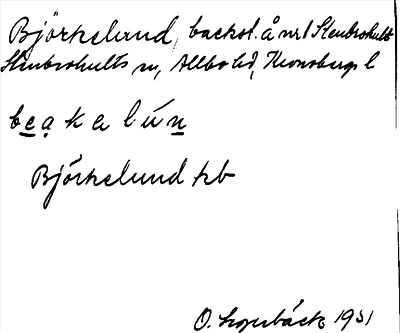 Björkelund, backst. å nr 1 Stenbrohult
Stenbrohults sn, Allbo hd, Kronobergs l
be̲ạkelún̲
Björkelund kb
O. 1931